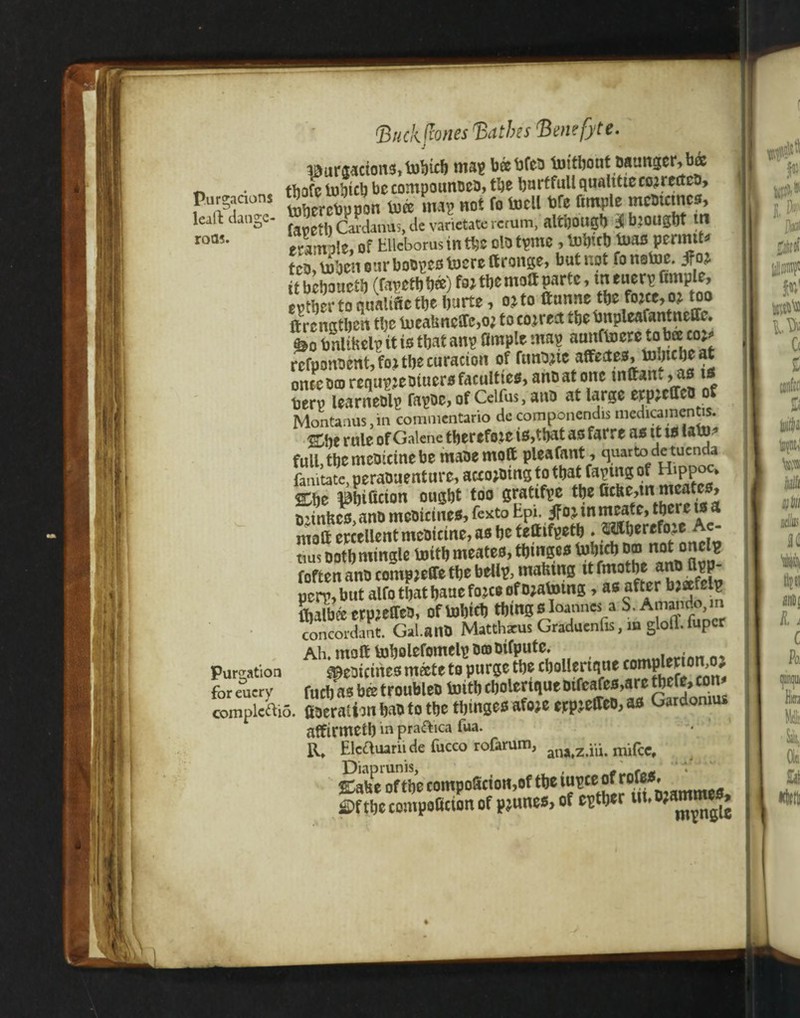 Buckstones Bathes Benefyte.
Purgacions, which may bée vsed without daunger, bée
those which be compounded, the hurtfull qualitie corrected,
Purgacions
least dange-
rous.
wherevppon wée may not so well vse simple medicines,
sayeth Cardanus, de varietate rerum, although I brought in
example, of Elleborus in the old tyme, which was permit-
ted, when our bodyes were stronge, but not so nowe. For
it behoueth (sayeth hée) for the most parte, in euery simple,
eyther to qualifie the hurte, or to stunne the force, or too
strengthen the weaknesse, or to correct the vnpleasantnesse.
So vnlikely it is that any simple may aunswere to bée cor-
respondent, for the curacion of sundrie affectes, whiche at
once doo requyre diuers faculties, and at one instant, as is
very learnedly sayde, of Celsus, and at large expressed of
Montanus, in commentario de componendis medicamentis.
The rule of Galene therefore is, that as farre as it is law-
full, the medicine be made most pleasant, quarto de tuenda
sanitate, peraduenture, according to that saying of Hippoc.
The Phisicion ought too gratifye the sicke, in meates,
drinkes, and medicines, sexto Epi. For in meate, there is a
most excellent medicine, as he testifyeth. Wherefore Ae-
tius doth mingle with meates, thinges which doo not onely
soften and compresse the belly, making it smothe and slyp-
pery, but also that haue force of drawing, as after bréefely
shalbée expressed, of which things Ioannes a S. Amando, in
concordant. Gal. and Matthæus Graduensis, in gloss. super
Ah. most wholesomely doo dispute.
Purgation
for euery
complectiō.
Medicines méete to purge the chollerique complexion, or
such as bée troubled with cholerique diseases, are these, con-
sideration had to the thinges afore expressed, as Gardonius
affirmeth in practica sua.
R. Electuarii de succo rosarum, ana. z. iii. misce,
Diaprunis,
Take of the composicion, of the iuyce of roses.
Of the composicion of prunes, of eyther iii. drammes,
myngle